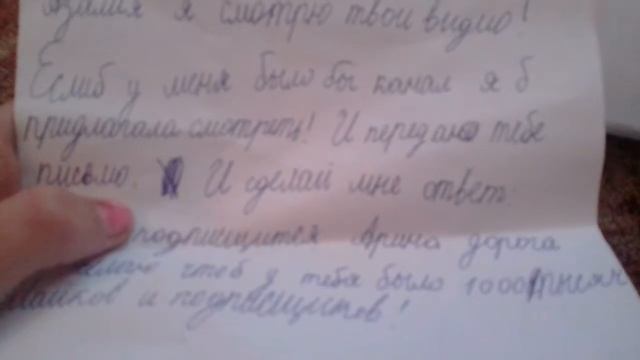 Азалия я смотрю твои видио!
Еслиб у меня было бы канал я б
придлагала смотреть! И передаю тебе
письмо. И сделай мне ответ.
подписщится Арина дорога
желаю чтоб у тебя было 1000
лайков и подписщиков!